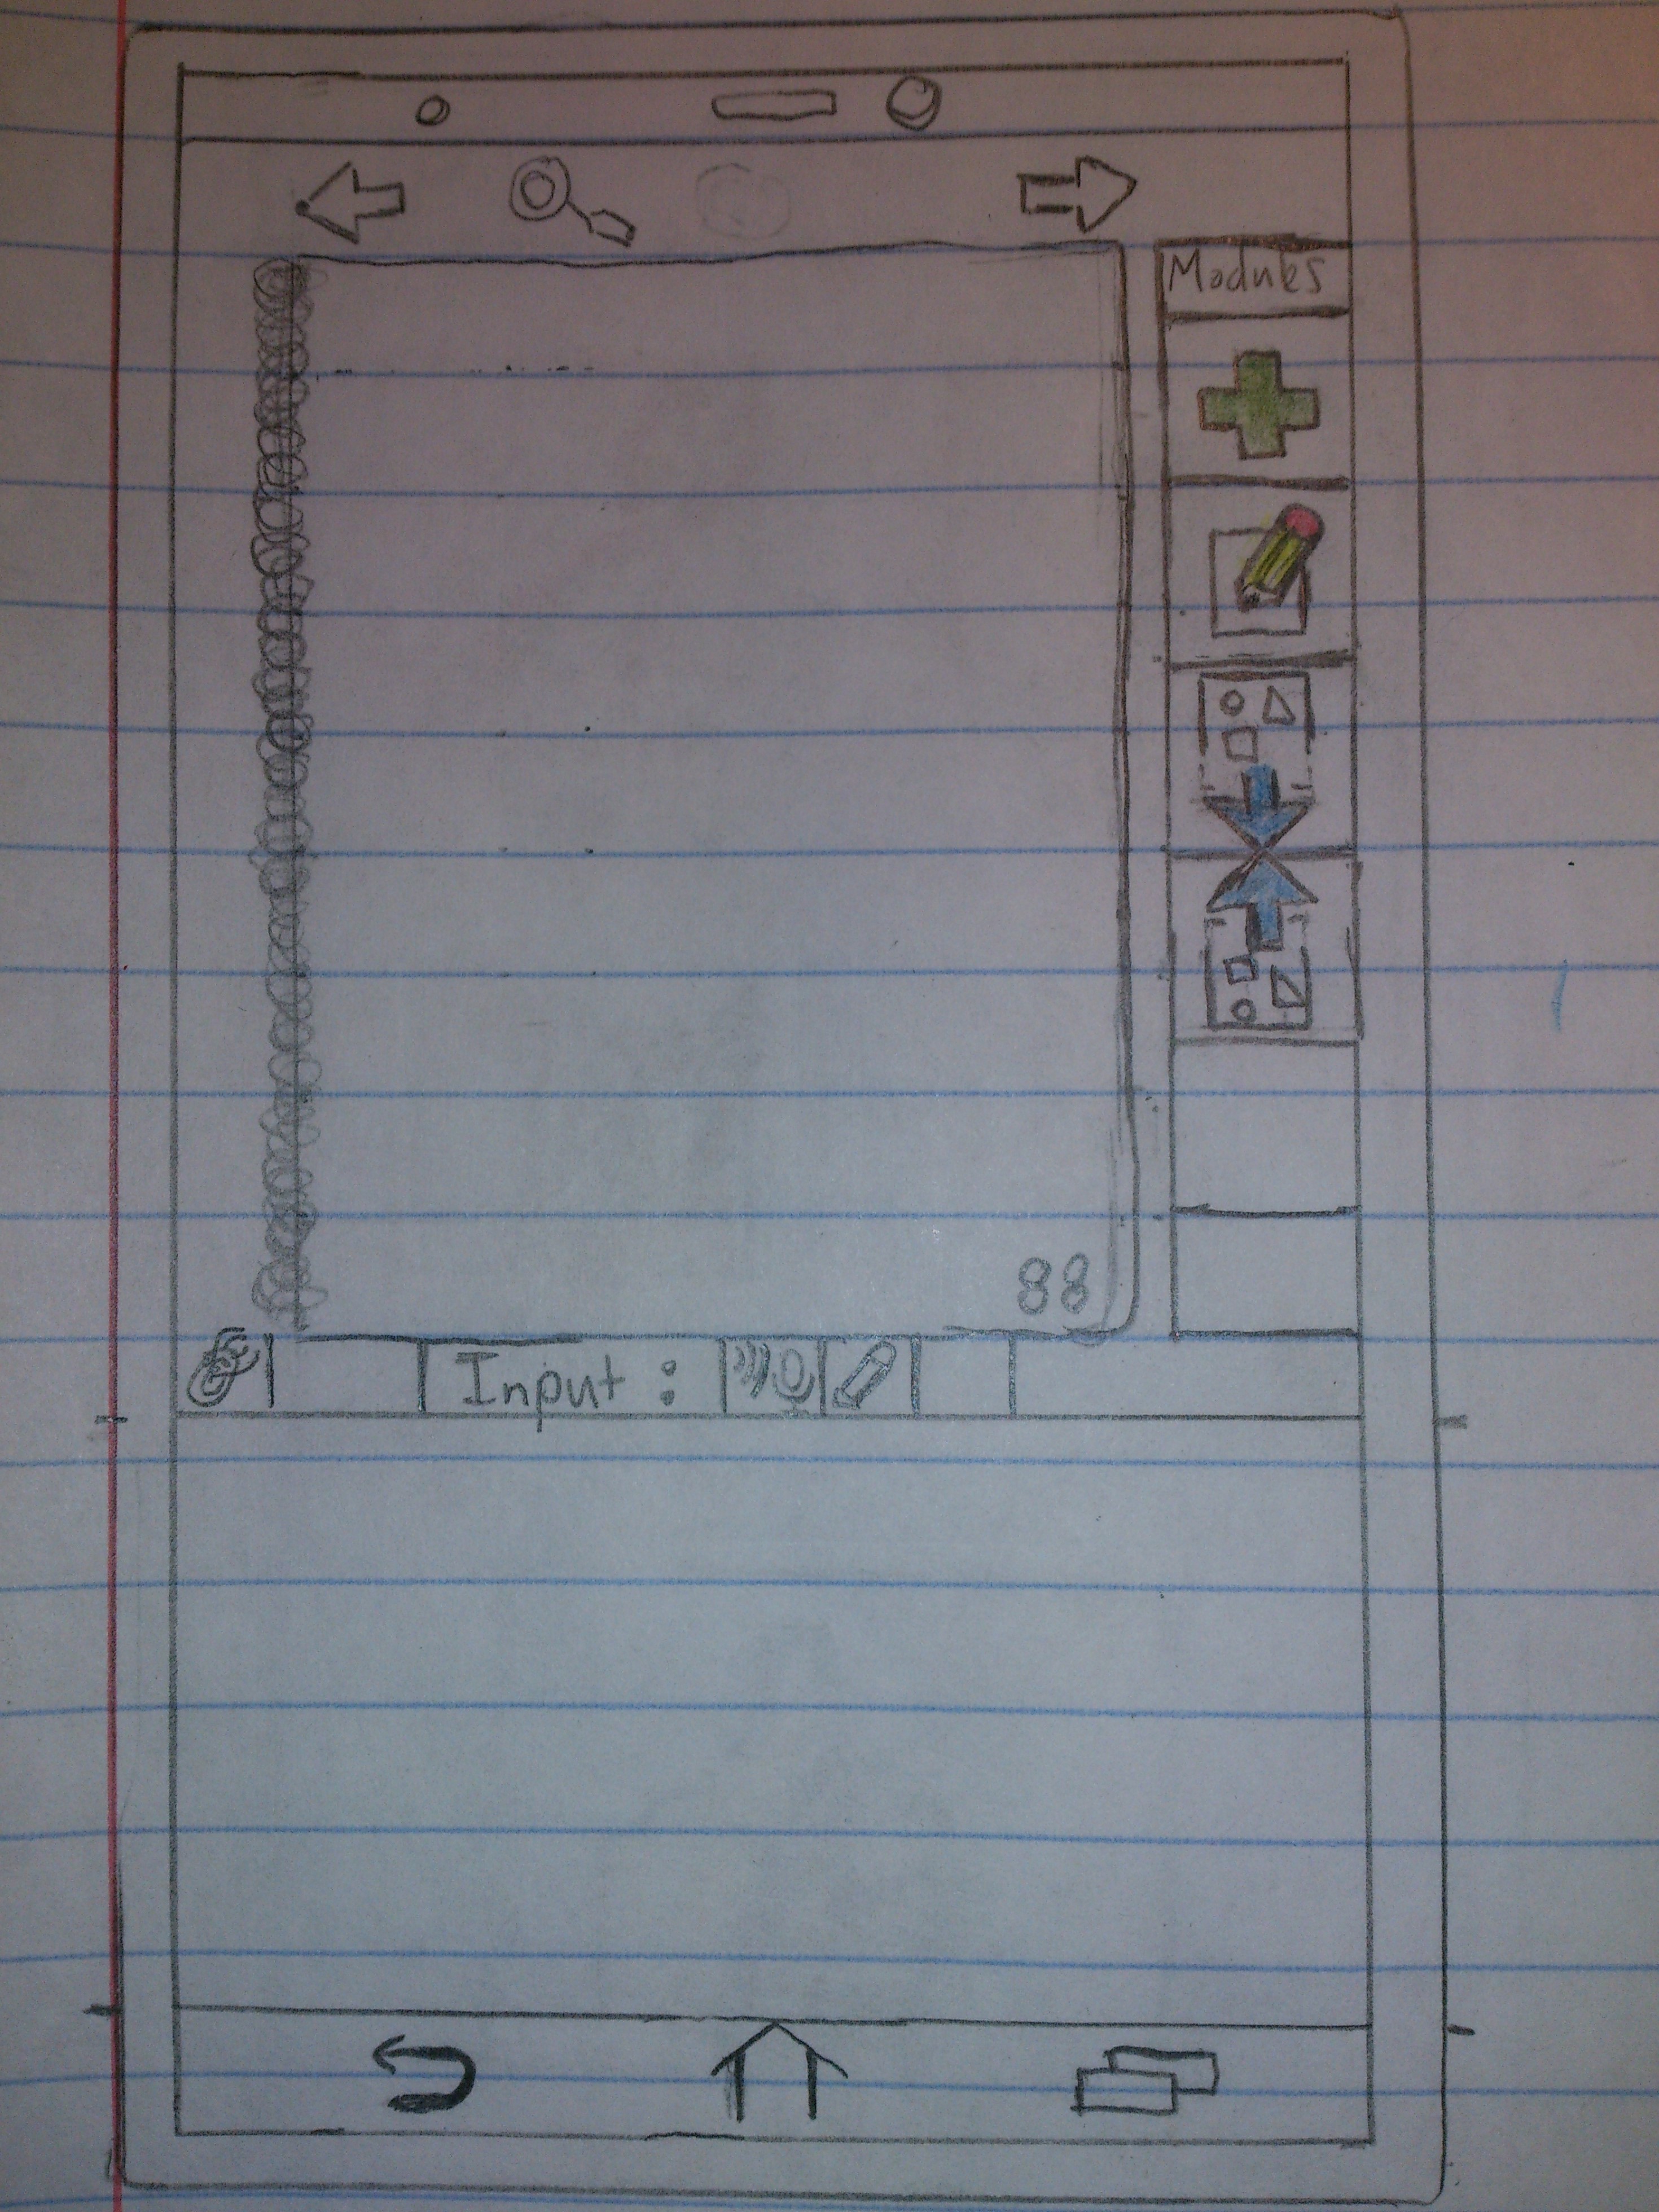 Modules
88
Input :